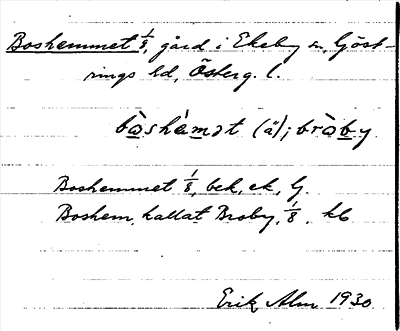 Boshemmet 1/8, gård i Ekeby sn, Göst-
rings hd, Österg. l.
bòshèmət (ä); bròby
Boshemmet 1/8, bek, ek, G.
Boshem, kallat Broby, 1/8. kb
Erik Alm 1930